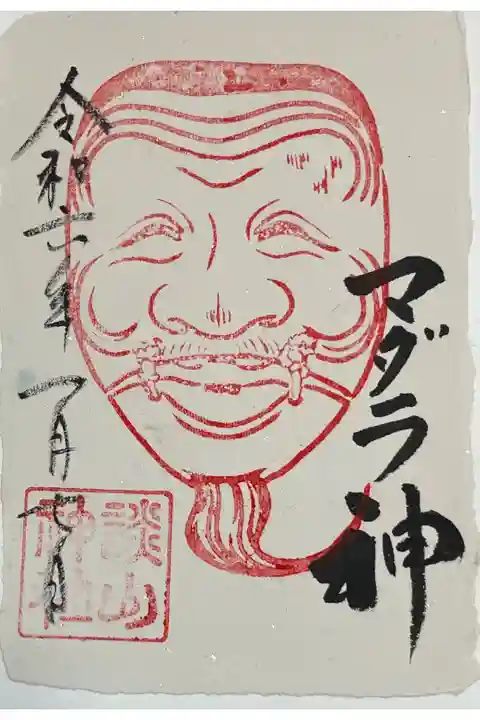 マダラ神
令和六年 一月七日
談山
神社